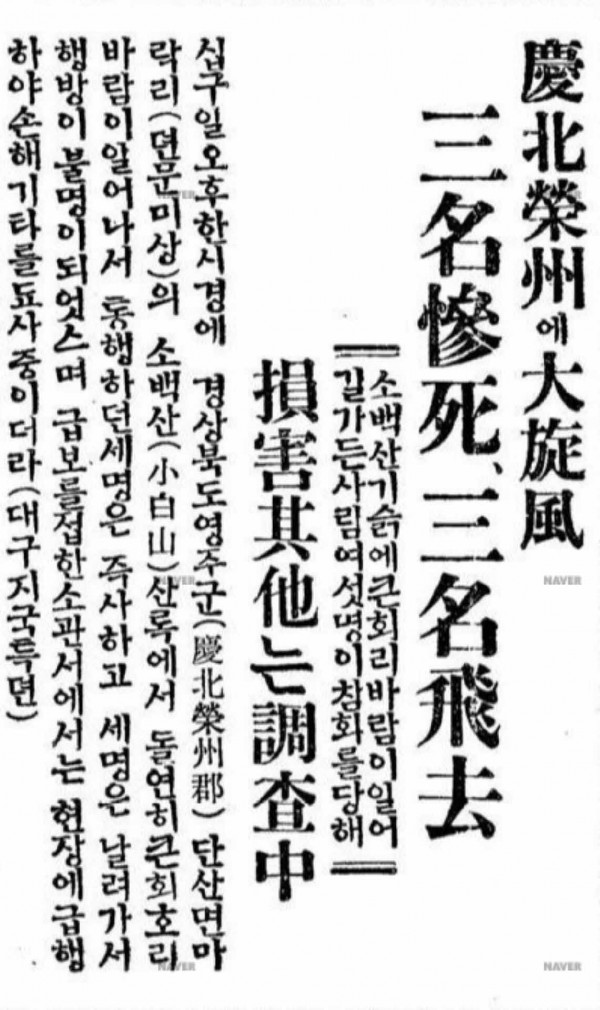 慶北榮州에大旋風
三名慘死、三名飛去
소백산기슭에큰회리바람이일어
길가든사람여섯명이참화를당해
損害其他는調査中
십구일오후한시경에 경상북도영주군(慶北榮州郡) 단산면마
락리(뎐문미상)의 소백산(小白山)산록에서 돌연히큰회호리
바람이일어나서 통행하던세명은 즉사하고 세명은 날려가서
행방이불명이되엇스며 급보를접한소관서에서는 현장에급행
하야손해기타를됴사중이더라(대구지국특뎐)
NAVER
NAVER
NAVER
NAVER
NAVER
NAVER